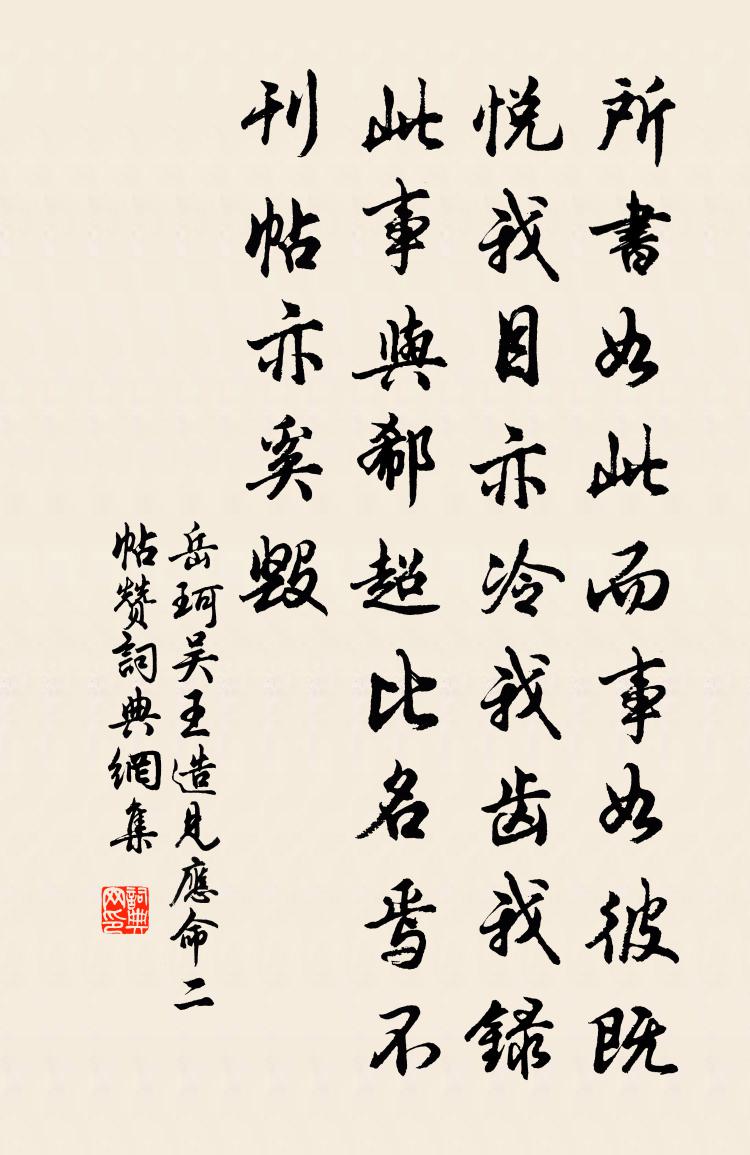 所書如此而事如彼既
悦我目亦冷我齿我録
此事與郗超比名焉不
刊帖亦奚毀
岳珂吴王造見應命二
帖赞詞典網集
詞典网印